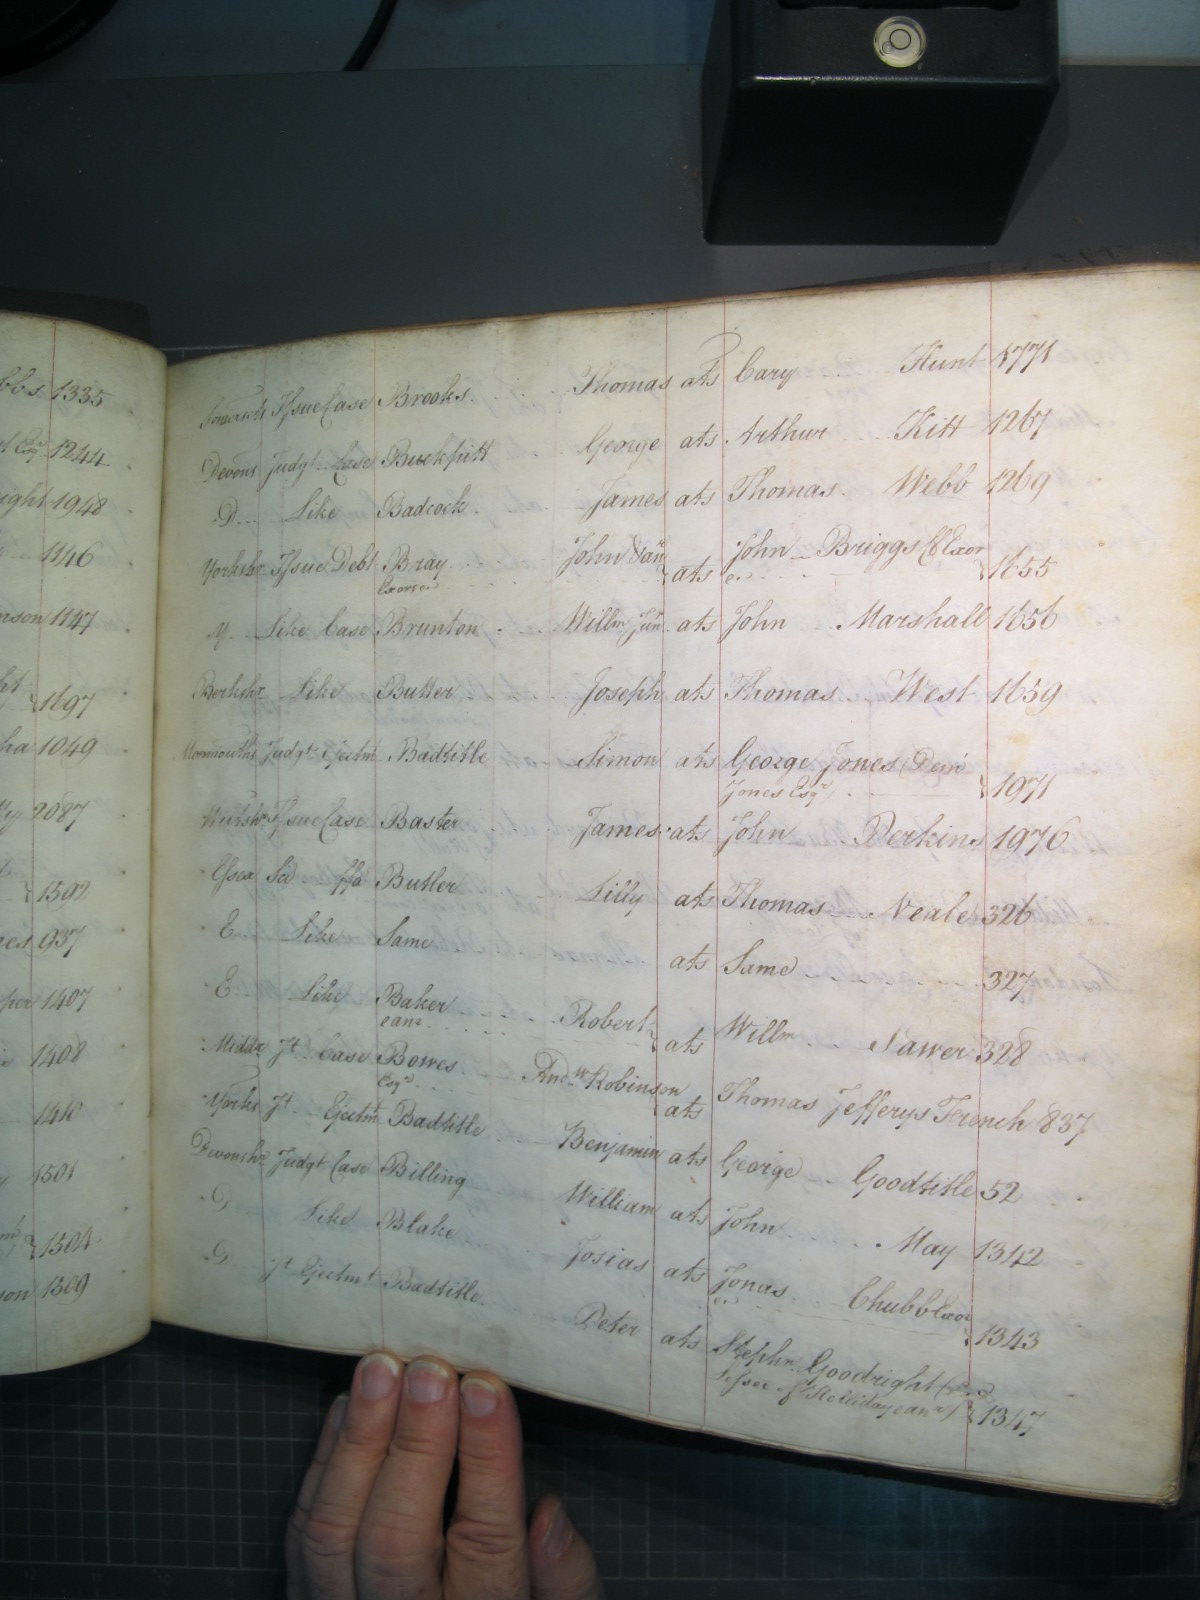 1335
1244
ight 1948
1146
nson 1147
1697
1049
2087
1392
937
1407
1408
1410
1501
1504
1509
Somersets Issue Case Brooks Thomas ats Cary Hunt 1771
Devons Judgt Case Buckpitt George ats Arthur Kitt 1267
D Like Badcock James ats Thomas Webb 1269
Yorkshr Issue Debt Bray John Van ats John Briggs Exor 1655
Exors
Y. Like Case Brunton Willm Junr ats John Marshall 1656
Berkshr Like Butler Joseph ats Thomas West 1659
Monmouths Judgt Ejectmt Badtitle Simon ats George Jones (Demi
Jones Esqr) 1971
Issue Case Baster James ats John Perkins 1976
Essex Sci ffa Butler Lilly ats Thomas Neale 326
E Like Same ats Same 327
E Like Baker Robert ats Willm Sawer 328
Middx Jt Case Bowes Andw Robinson ats Thomas Jefferys French 837
Esqr
Yorks Jt Ejectmt Badtitle Benjamin ats George Goodtitle 52
Devonshr Judgt Case Billing William ats John May 1342
D Like Blake Josias ats Jonas Chubb Exor 1343
D Jt Ejectmt Badtitle Peter ats Stephn Goodright
Lessee of Holliday 1347